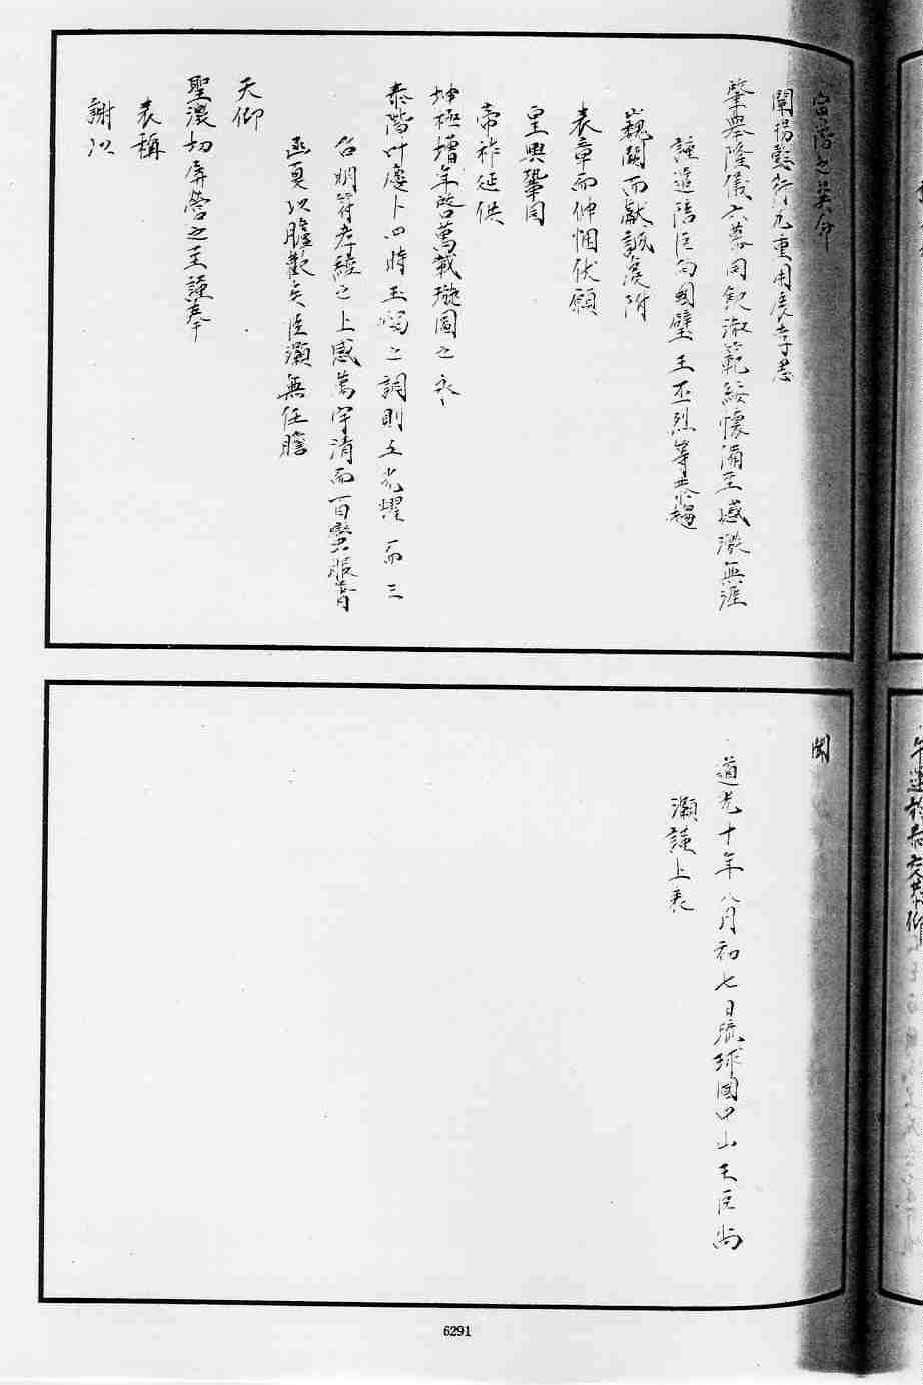 宮階之美佾
闡揚懿行九重用展孝思
肇舉隆儀六幕同欽淑範綏懷備至感激無涯
謹遣陪臣向國璧王丕烈等恭趨
巍闕而獻誠虔附
表章而伸悃伏願
皇輿鞏固
帝祚延供
坤極增年啓萬載璇圖之永
泰階叶慶卜四時玉燭之調則五光耀而三
台朗符孝綏之上感萬宇清而百蠻賑
函夏以臚歡矣臣灝無任瞻
天仰
聖激切屏營之至謹奉
表稱
謝以
聞
道光十年八月初七日琉球國中山王臣尚
灝謹上表
6291